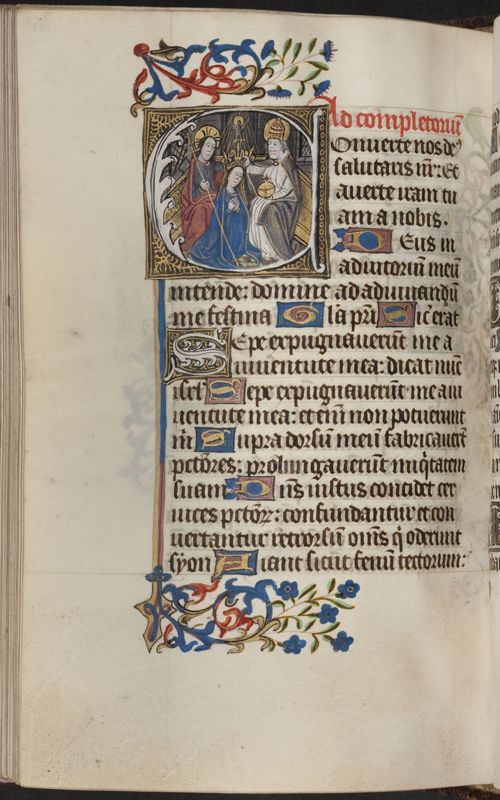 Ad completoriū
Conuerte nos deꝰ
salutaris nr̄: Et
auerte iram tu
am a nobis.
Deus in
adiutoriū meū
intende: domine ad adiuuandū
me festina Gl̄a pr̄i Sic̄ erat
Sepe expugnauerūt me a
iuuentute mea: dicat nūc
isrl̄ Sepe expugnauerūt me a iu
uentute mea: et em̄ non potuerunt
m̄ Supra dorsū meū fabricauert̄
pctōres: prolungauerūt iniq̄tatem
suam Dn̄s iustus concidet cer
uices pctōꝝ: confundantur et con
uertantur retrorsū om̄s q̄ oderunt
syon Fiant sicut fenū tectorum: